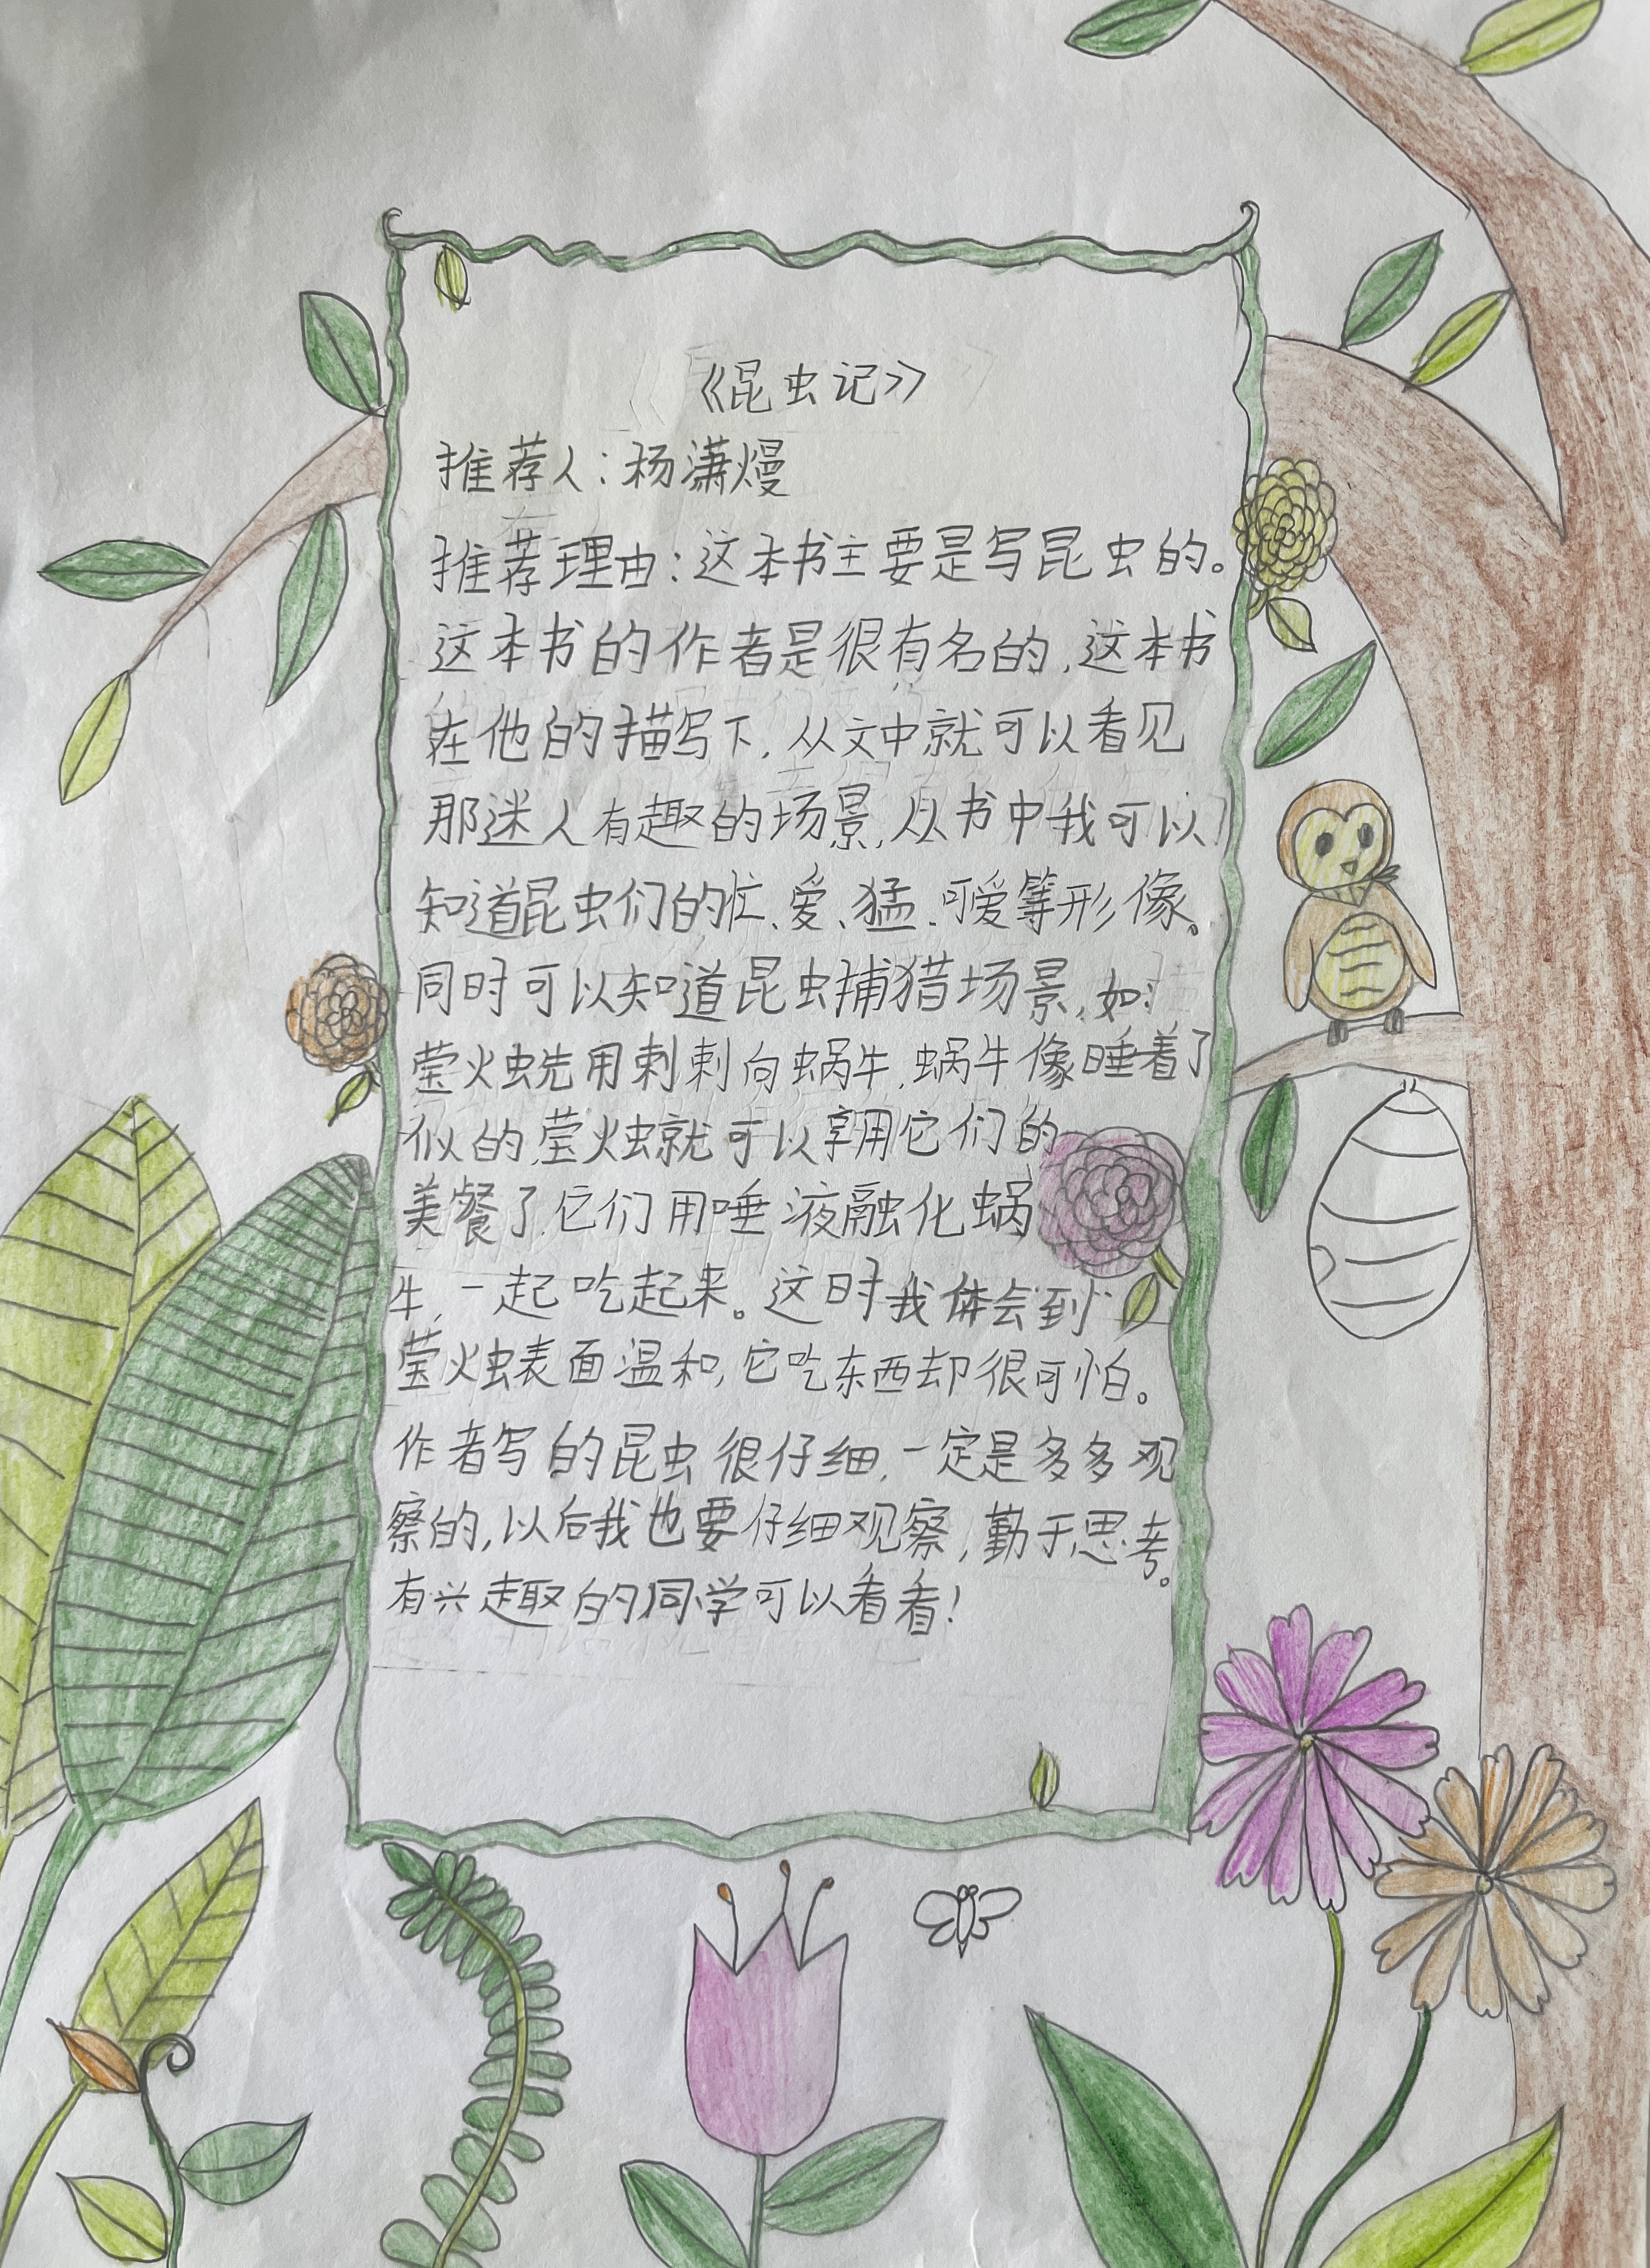 《昆虫记》
推荐人：杨潇熳
推荐理由：这本书主要是写昆虫的。
这本书的作者是很有名的,这本书
在他的描写下,从文中就可以看见
那迷人有趣的场景,从书中我可以
知道昆虫们的忙、爱、猛、可爱等形像。
同时可以知道昆虫捕猎场景,如:
萤火虫先用刺刺向蜗牛,蜗牛像睡着了
似的,萤火虫就可以享用它们的
美餐了,它们用唾液融化蜗
牛,一起吃起来。这时我体会到
萤火虫表面温和,它吃东西却很可怕。
作者写的昆虫很仔细,一定是多多观
察的,以后我也要仔细观察,勤于思考。
有兴趣的同学可以看看!